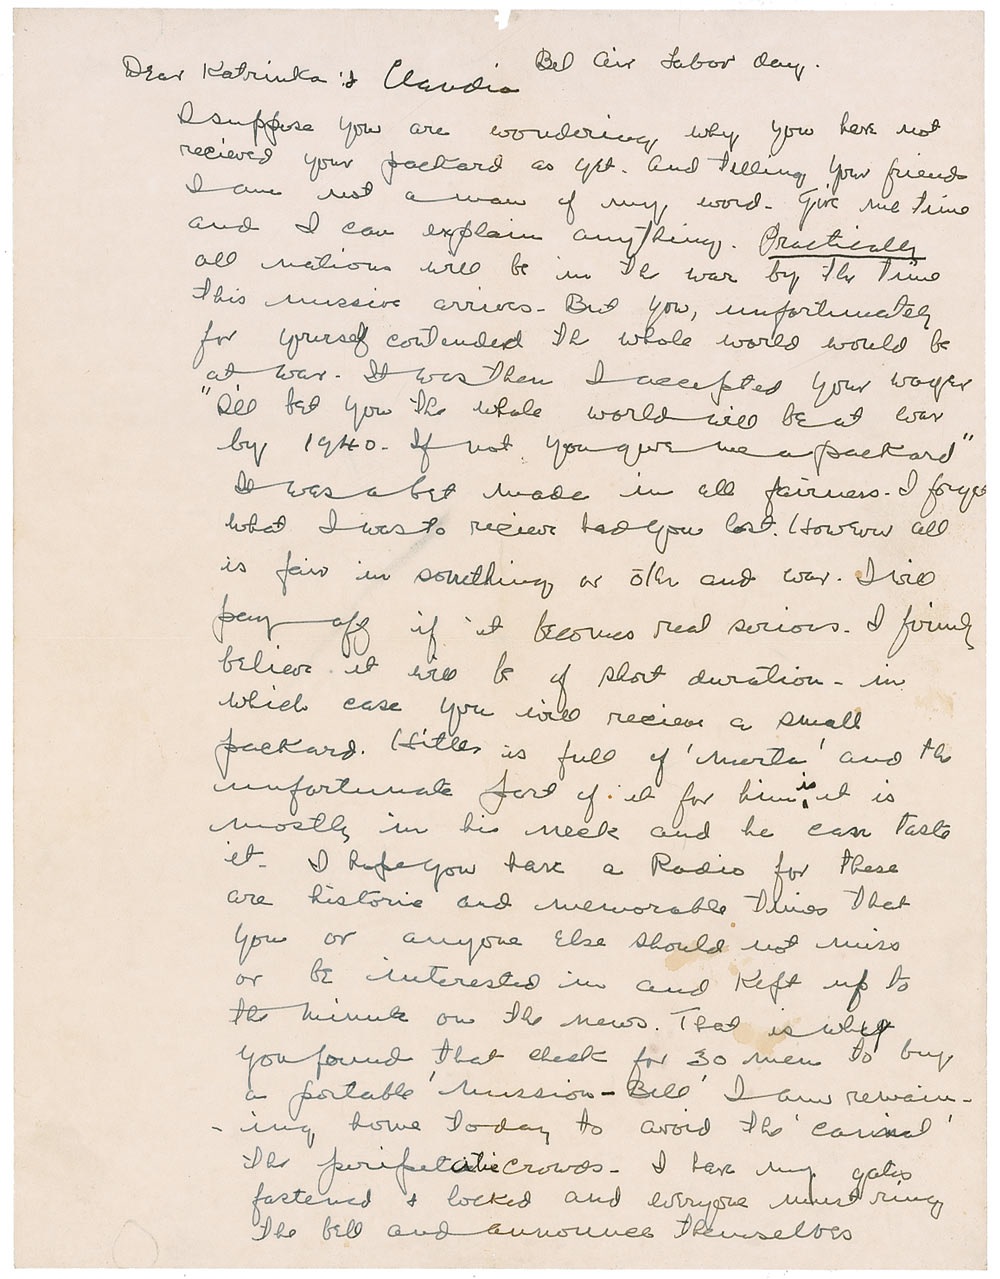 Bel Air Labor day.
Dear Katrinka & Claudia
I suppose you are wondering why you have not
recieved your packard as yet. And telling your friends
I am not a man of my word - Give me time
and I can explain anything. Practically
all nations will be in the war by the time
this missive arrives - But you, unfortunately
for yourself contended the whole world would be
at war - It was then I accepted your wager
"I'll bet you the whole world will be at war
by 1940 - If not you give me a packard"
It was a bet made in all fairness. I forget
what I was to recieve had you lost. However all
is fair in something or other and war. I will
pay off if it becomes real serious. I firmly
believe it will be of short duration - in
which case you will recieve a small
packard. Hitler is full of 'merta' and the
unfortunate part of it for him is, it is
mostly in his neck and he can taste
it. I hope you have a Radio for these
are historic and memorable times that
you or anyone else should not miss
or be interested in and kept up to
the minute on the news. That is why
you found that check for 30 men to buy
a portable 'Mission-Bell' I am remain-
- ing home today to avoid the 'carnival'
the peripatetic crowds - I have my gates
fastened & locked and everyone must ring
the bell and announce themselves